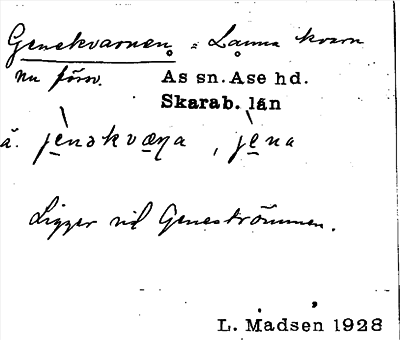 Genekvarnen = Lanna kvarn
nu försv. As sn. Ase hd.
Skarab. län
ä. jènəkvæɳa, jèna
Ligger vid Geneströmmen.
L. Madsen 1928